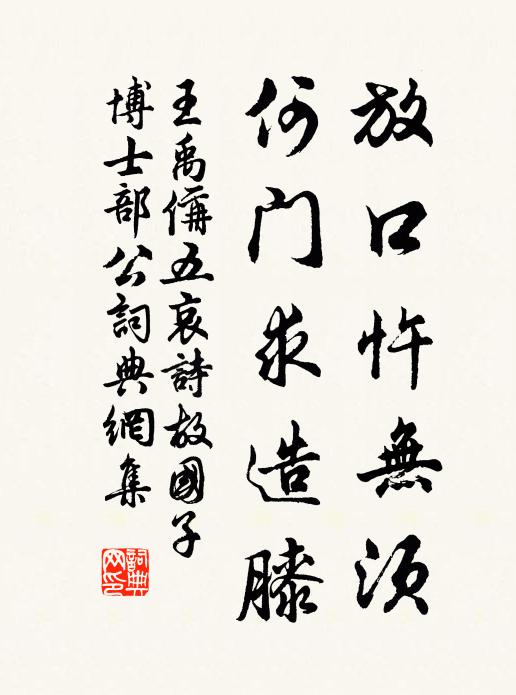 放口忤無須
何門求造膝
王禹偁五哀詩故國子
博士部公詞典網集
詞典网印